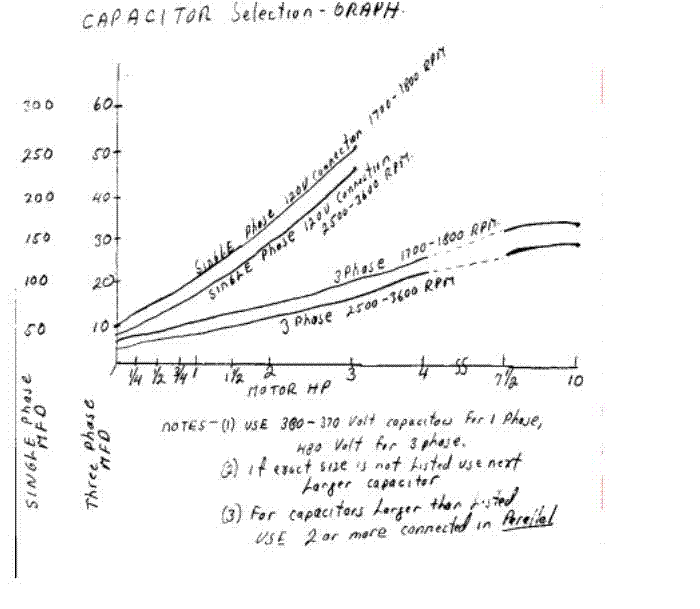 CAPACITOR Selection - GRAPH.
300 60
250 50
200 40
150 30
100 20
50 10
SINGLE Phase 120V Connection 1700-1800 RPM
SINGLE Phase 120V Connection
2500-3600 RPM.
3 Phase 1700-1800 RPM
3 Phase 2500-3600 RPM
1/4 1/2 3/4 1 1 1/2 2 3 4 5 7 1/2 10
MOTOR HP
SINGLE Phase
MFD
Three Phase
MFD
NOTES - (1) USE 300-370 Volt capacitors For 1 Phase,
480 Volt for 3 phase.
(2) if exact size is not Listed use next
Larger capacitor
(3) For capacitors Larger than Listed
USE 2 or more connected in Parallel